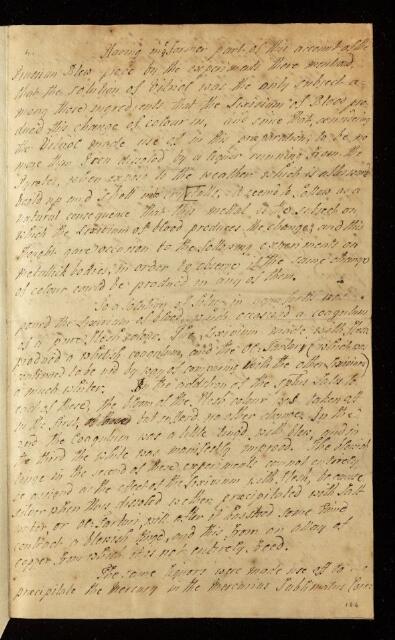 Having in ye former part of this account of the
Prussian Blew prov'd by the experiments there mention'd
that the solution of Vitriol was the only subject a-
mong those ingredients that the Lixivium of Blood
this change of colour in, and seeing that considering
the Vitriol made use of in this preparation to be no
more than Iron dissolved by a liquor running from the
Pyrites, when expos'd to the weather which is afterwards
boil'd up and shott into Crystalls, it seem'd to follow as a
natural consequence that this metal is the subject on
which the Lixivium of blood produces the change, and this
thought gave occasion to the following experiments on
metallick bodies, in order to observe if the same change
of colour could be produced in any of them.
To a solution of silver in aqua fortis was
pour'd the Lixivium of blood, which occasion'd a coagulum
of a pure flesh colour. The Lixivium made with flesh
produced a whitish coagulum, and the Ol. Tartar
to be used by way of comparing with the other Lixiviums
a much whiter. the addition of the Spirit Salis to
each of these, the bloom of the flesh colour was taken off
in the first, but caused no other change, in the 2
and the coagulum was a little ting'd with blew, and in
the third the white was manifestly improved. The
tinge in the second of these experiments cannot entirely
be assign'd as the effect of the Lixivium with flesh, because
silver when thus dissolved is often precipitated with salt
water or Ol. Tartar, will after it has stood some time
contract a blewish tinge, and this from an alloy of
copper from which it is not entirely freed.
The same liquors were made use of to
precipitate the mercury in the Mercurius Sublimatus Corro
184